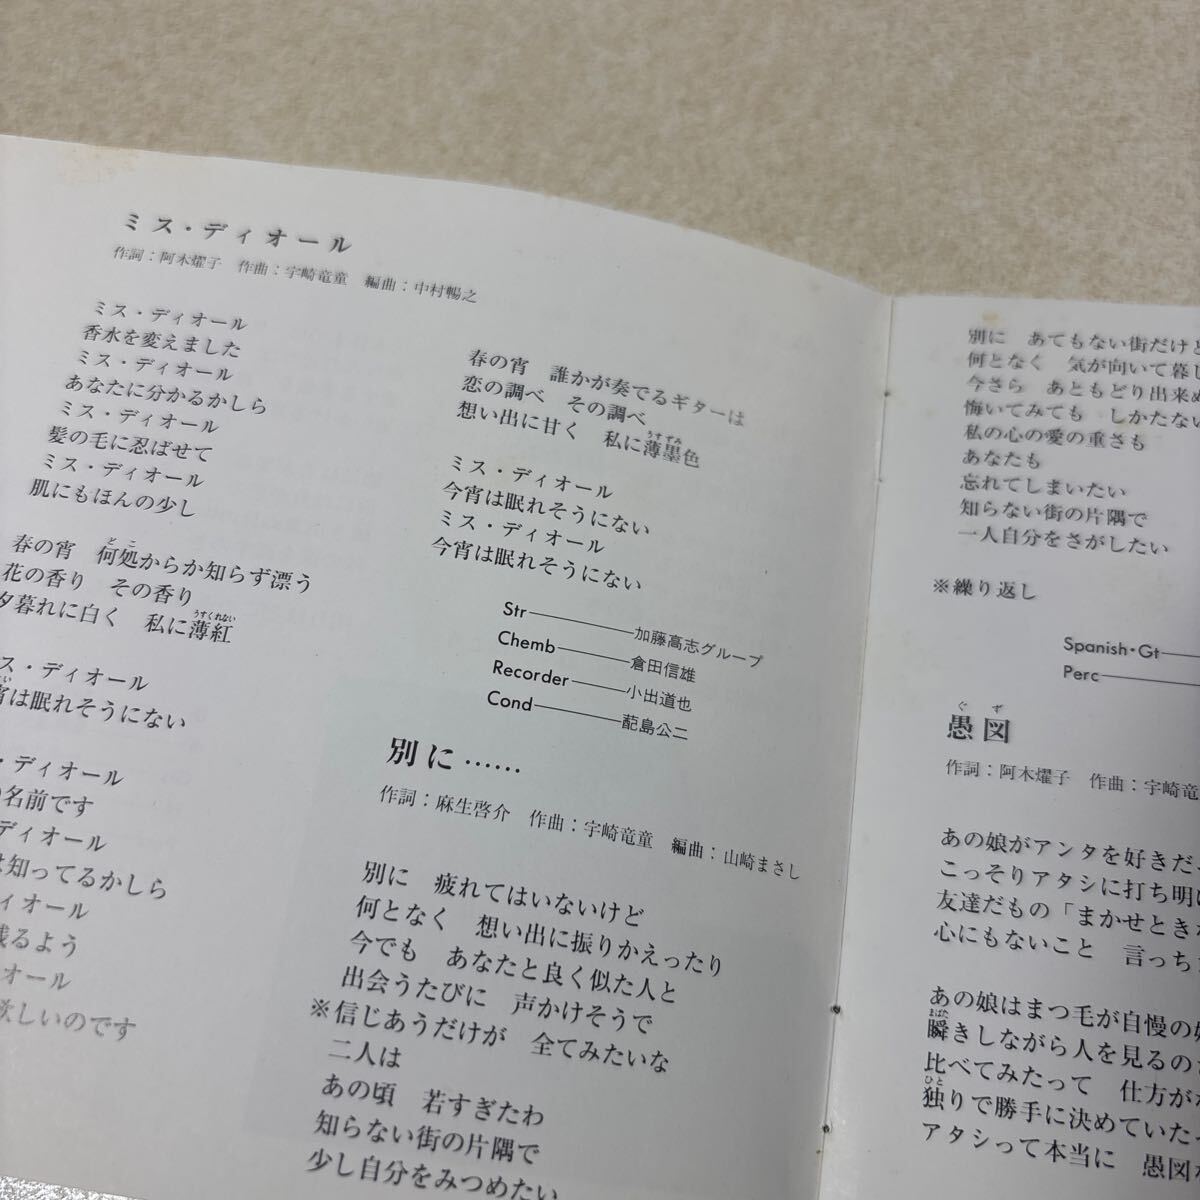 ミス・ディオール
作詞：阿木燿子　作曲：宇崎竜童　編曲：中村暢之
ミス・ディオール
香水を変えました
ミス・ディオール
あなたに分かるかしら
ミス・ディオール
髪の毛に忍ばせて
ミス・ディオール
肌にもほんの少し
春の宵　何処からか知らず漂う
どこ
花の香り　その香り
夕暮れに白く　私に薄紅
うすくれない
ス・ディオール
宵は眠れそうにない
・ディオール
名前です
ディオール
知ってるかしら
ィオール
残るよう
オール
欲しいのです
春の宵　誰かが奏でるギターは
恋の調べ　その調べ
想い出に甘く　私に薄墨色
うすずみ
ミス・ディオール
今宵は眠れそうにない
ミス・ディオール
今宵は眠れそうにない
Str 加藤高志グループ
Chemb 倉田信雄
Recorder 小出道也
Cond 蓜島公二
別に……
作詞：麻生啓介　作曲：宇崎竜童　編曲：山崎まさし
別に　疲れてはいないけど
何となく　想い出に振りかえったり
今でも　あなたと良く似た人と
出会うたびに　声かけそうで
※信じあうだけが　全てみたいな
二人は
あの頃　若すぎたわ
知らない街の片隅で
少し自分をみつめたい
別に　あてもない街だけど
何となく　気が向いて暮し
今さら　あともどり出来ぬ
悔いてみても　しかたない
私の心の愛の重さも
あなたも
忘れてしまいたい
知らない街の片隅で
一人自分をさがしたい
※繰り返し
Spanish・Gt
Perc
愚図
ぐず
作詞：阿木燿子　作曲：宇崎竜
あの娘がアンタを好きだ
こっそりアタシに打ち明け
友達だもの「まかせときな
心にもないこと　言っち
あの娘はまつ毛が自慢の娘
瞬きしながら人を見るの
まばた
比べてみたって　仕方が
独りで勝手に決めていた
ひと
アタシって本当に　愚図